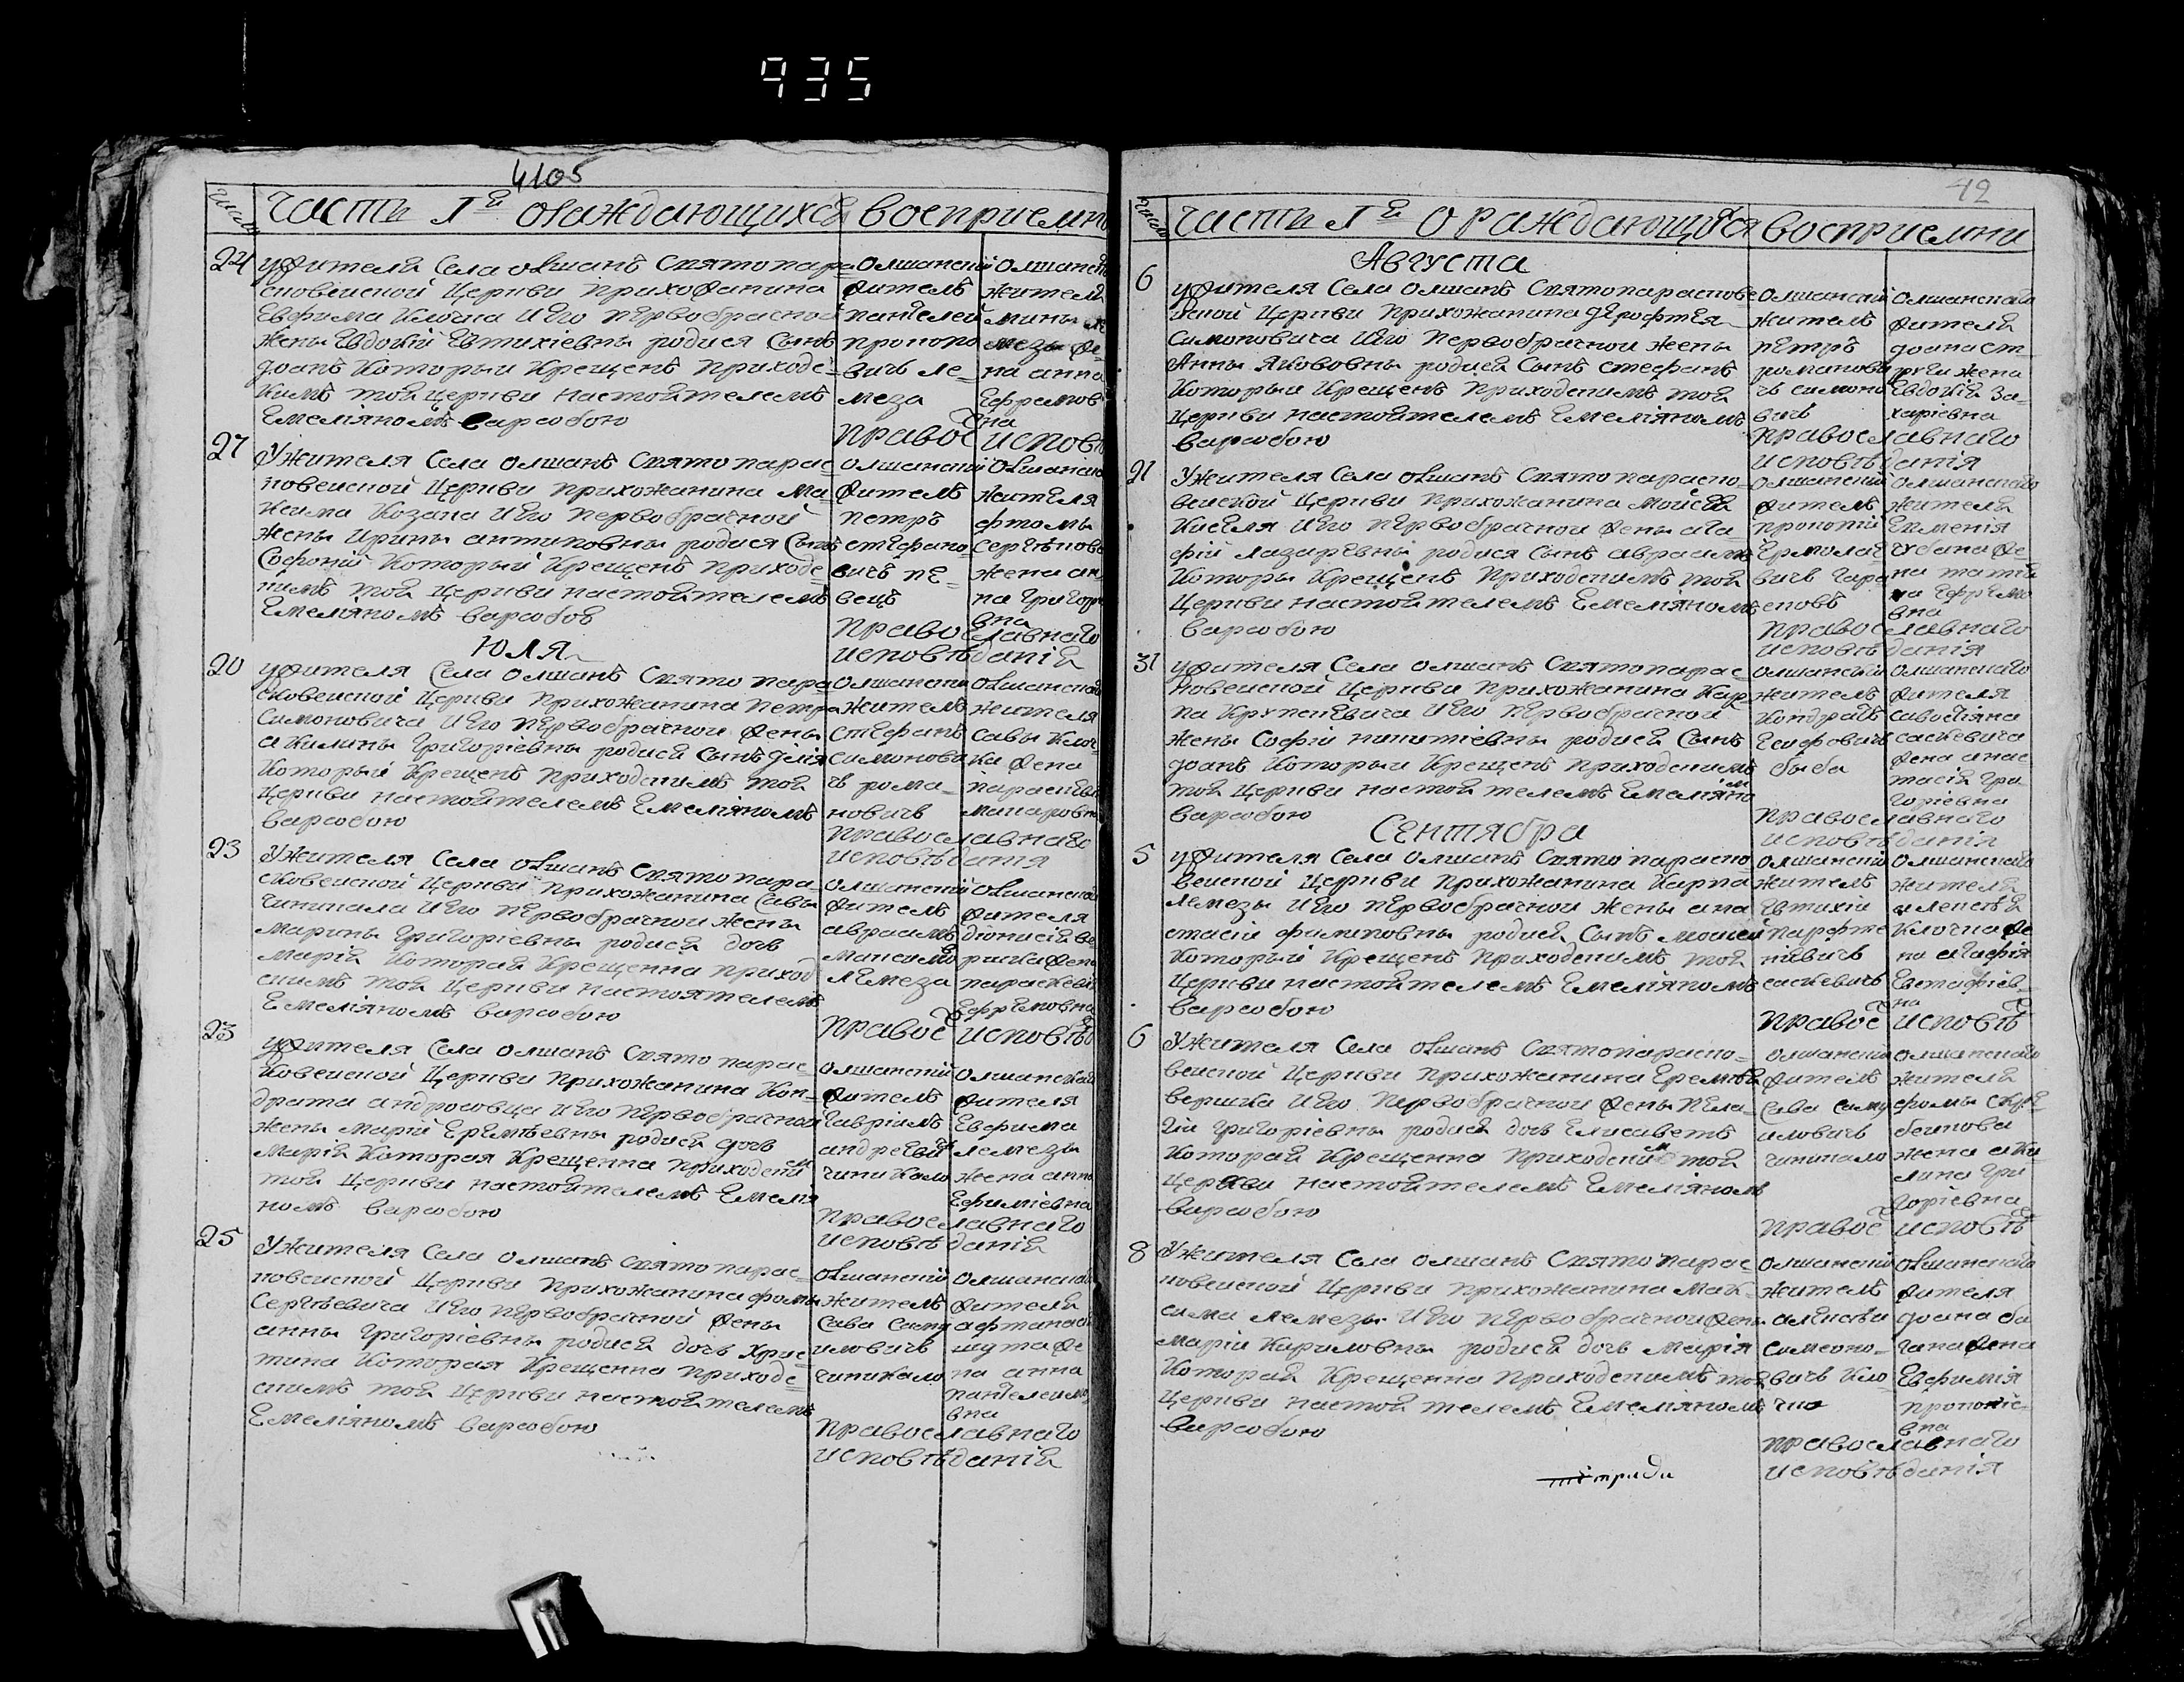 935
4105
Число
Часть Iй о раждающихся
восприемни
24
У жителя Села олшанъ Святопара
сковеиской Церкви Прихожанина
Евфима Ключка И его первобрачной
жены Евдокій Евтихіевны родися Сынъ
Іоанъ Которыи Крещенъ Приходс-
кимъ той церкви настоятелемъ
Емеліяномъ варавобою
Олшанскій
житель
пантелей
прокопо
вичъ ле-
меза
Олшанск
жителя
мины ле
мезы же-
на анна
Ефремов
на
право исповѣ
27
У жителя Села олшанъ Святопарас
ковеиской Церкви прихожанина Ма-
ксима Козака И его первобрачной
жены Ирины антиповны родися Сынъ
Софоній Который Крещенъ приходс-
кимъ той Церкви настоятелемъ
Емеліяномъ варавобою
олшанскій
житель
петръ
стефано
вичъ пѣ-
вецъ
олшанско
жителя
фтомы
Сергѣиова
жена ан-
на григорі
вна
православнаго
исповѣданія
Юля
20
У жителя Села олшанъ Святопара
сковеиской Церкви прихожанина петра
Симоновича И его первобрачной жены
акилины григоріевны родися Сынъ Ілія
Которыи Крещенъ приходскимъ той
Церкви настоятелемъ Емеліяномъ
варавобою
олшански
житель
Стефанъ
симонови
чъ рома-
новичъ
олшанской
жителя
Савы Клоч
ка жена
параскеві
макаровна
православнаго
исповѣданія
23
У жителя Села олшанъ Святопара-
сковеиской Церкви прихожанина Савы
чиникала И его первобрачной жены
марины григоріевны родися дочь
марія Которая Крещенна приход
скимъ той Церкви настоятелемъ
Емеліяномъ варавобою
олшанскій
житель
авраамъ
максимо
лемеза
олшанской
жителя
діонисія ве
ришка жена
параскевія
Ефремовна
право исповѣ
23
У жителя Села олшанъ Святопарас-
ковеиской Церкви прихожанина Кон-
драта андросовца И его первобрачной
жены марій Еремѣевны родися дочь
марія Которая Крещенна приходским
той Церкви настоятелемъ Емелія
номъ варавобою
олшанскій
житель
гавріилъ
андреевъ
чиникало
олшанскаго
жителя
Евфима
лемезы
жена анна
Ефиміевна
православнаго
исповѣданія
25
У жителя Села олшанъ Святопарас-
ковеиской Церкви прихожанина фомы
Сергѣевича И его первобрачной жены
анны григоріевны родися дочь хрис
тина Которая Крещенна приходс-
кимъ той Церкви настоятелемъ
Емеліяномъ варавобою
олшанскій
житель
Сава Саму
иловичъ
чиникало
олшанскаго
жителя
афтанасі
шута же
на анна
пантелеимо
вна
православнаго
исповѣданія
42
Число
Часть Iй о раждающихся
восприемни
Августа
6
У жителя Села олшанъ Святопараскове
иской Церкви прихожанина дерофтея
Симоновича И его первобрачной жены
Анны Яковovны родися Сынъ стефанъ
Которыи Крещенъ приходскимъ той
церкви настоятелемъ Емеліяномъ
варавобою
олшанскій
житель
петръ
романови
чъ симоно
вичъ
олшанскаго
жителя
Іоана ст-
жена
Евдокія За-
харіевна
православнаго
исповѣданія
21
У жителя Села олшанъ Святопараско-
веиской Церкви прихожанина Моисея
Киселя И его первобрачной жены ага-
фій лазаревны родися Сынъ авраамъ
Которы Крещенъ приходскимъ той
Церкви настоятелемъ Емеліяномъ
варавобою
олшанскій
житель
прокопій
Ермолае
вичъ гара
сковъ
олшанскаго
жителя
Екменія
чубана же-
на татія
на Ефремо
вна
православнаго
исповѣданія
31
У жителя Села олшанъ Святопарас-
ковеиской Церкви прихожанина Кар
па Крупкевича И его первобрачной
жены Софіи никитевны родися Сынъ
Іоанъ Которыи Крещенъ приходскимъ
той Церкви настоятелемъ Емеліяно
варавобою
олшанскій
житель
Кондратъ
Іосифовичъ
быба
олшанскаго
жителя
савостіяна
саскевича
жена анас
тасія гри-
горіевна
православнаго
исповѣданія
Сентября
5
У жителя Села олшанъ Святопараско
веиской Церкви прихожанина Карпа
лемезы И его первобрачной жены ана
стасіи филиповны родися Сынъ моисеи
Которыи Крещенъ приходскимъ той
Церкви настоятелемъ Емеліяномъ
варавобою
олшанскій
житель
Евтихіи
парфте
ніевичъ
саскевичъ
олшанскаго
жителя
алексѣя
Ключка же
на агафія
Евстафіев-
на
право исповѣ
6
У жителя Села олшанъ Святопараско-
веиской Церкви прихожанина Еремѣя
веришка И его первобрачной жены Пела-
гіи григоріевны родися дочь Елисаветъ
Которая Крещенна приходским той
церкви настоятелемъ Емеліяномъ
варавобою
олшанскій
житель
Сава саму
иловичъ
чиникало
олшанскаго
жителя
фомы
жена аки
лина гри
горіевна
право исповѣ
8
У жителя Села олшанъ Святопарас
ковеиской Церкви прихожанина Мак-
сима лемезы И его первобрачной жены
маріи Кириловны родися дочь марія
Которая Крещенна приходскимъ той
церкви настоятелемъ Емеліяномъ
варавобою
олшанскій
житель
алексѣй
симеоно-
вичъ Клю-
чко
олшанскаго
жителя
Іоана ба
гана жена
Евфимія
прокопіе-
вна
православнаго
исповѣданія